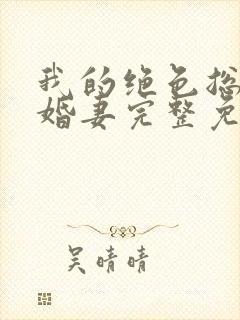 我的绝色总
婚妻完整免
吴晴晴